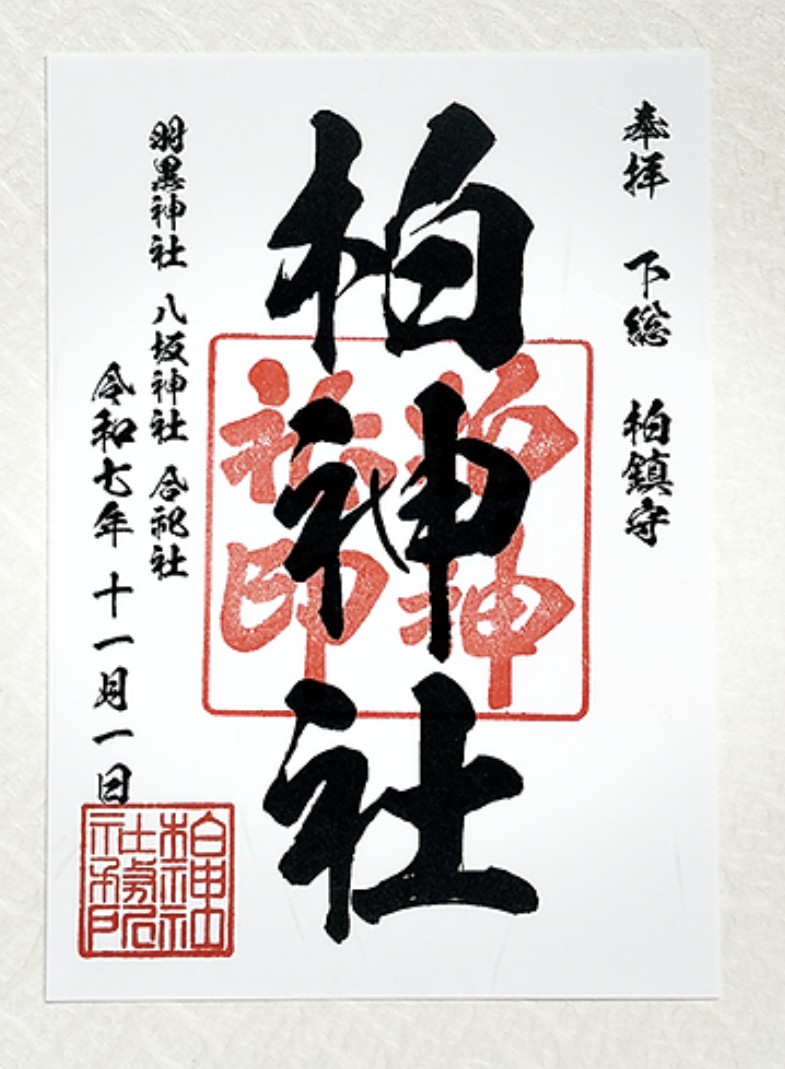 奉拝 下総 柏鎮守
柏神社
羽黒神社 八坂神社 合祀社
令和七年 十一月一日
柏神
社印